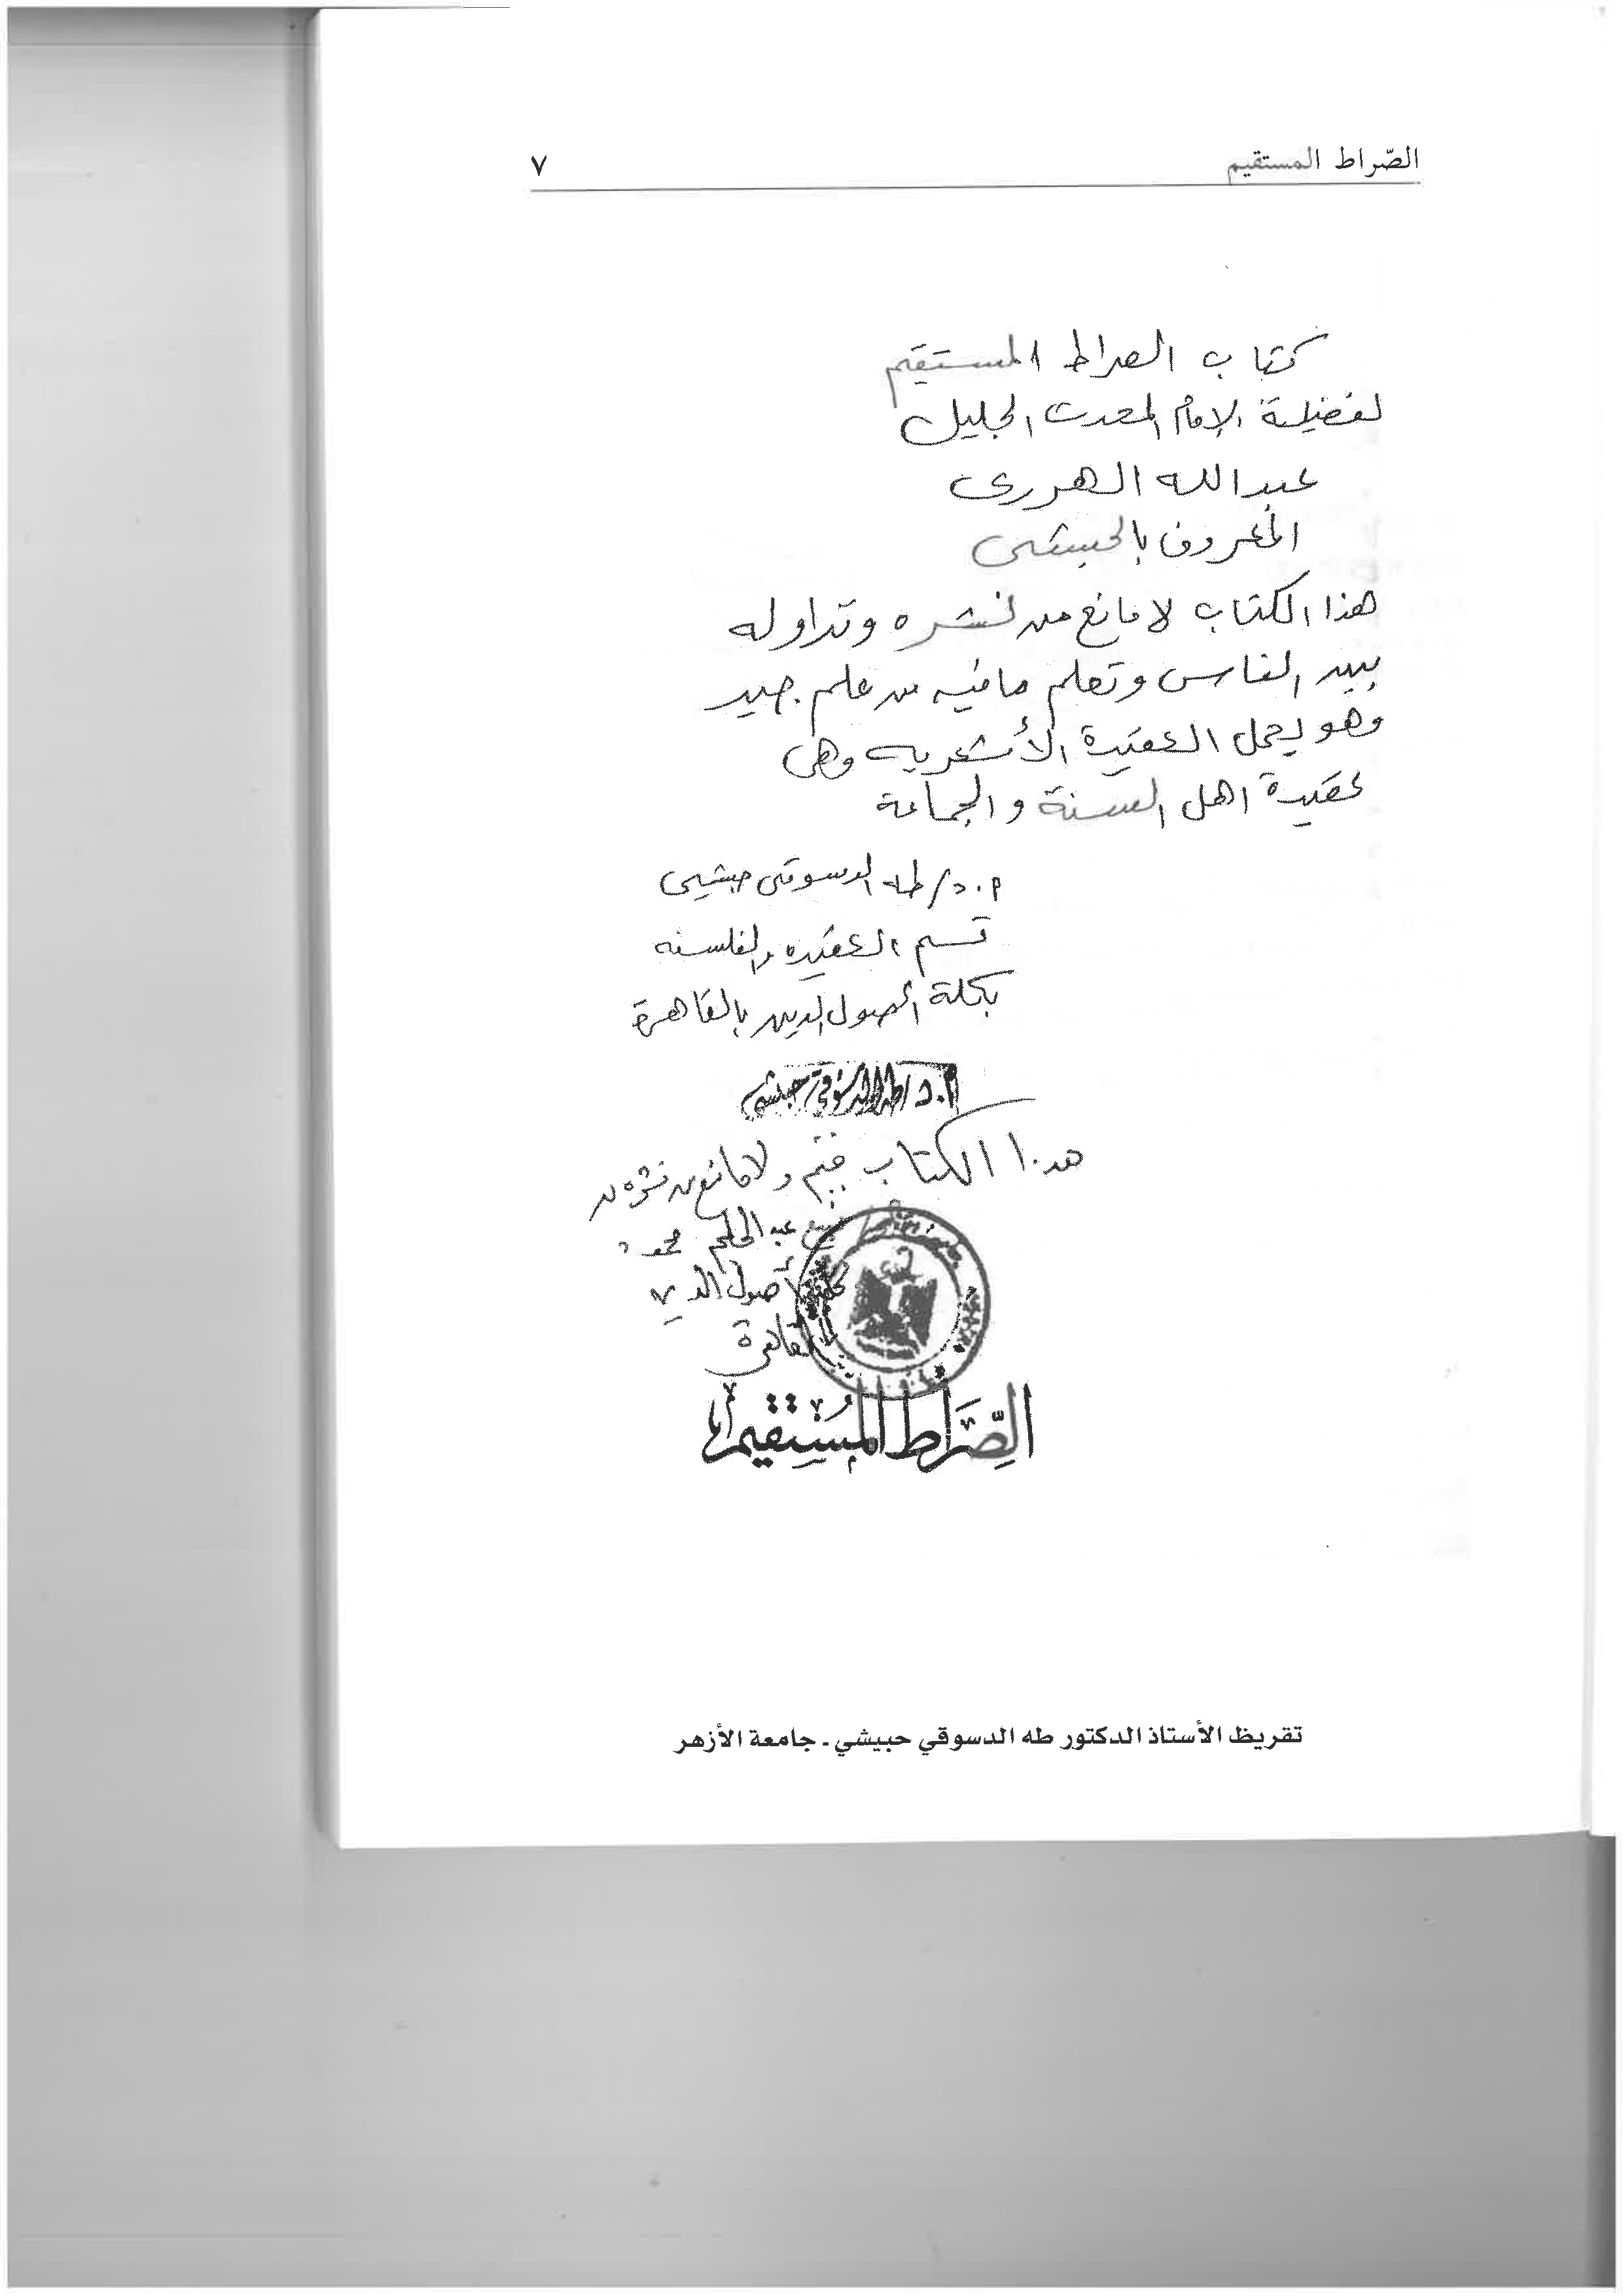 الصّراط المستقيم ٧
كتاب الصراط المستقيم
لفضيلة الإمام المحدث الجليل
عبد الله الهررى
المعروف بالحبشى
هذا الكتاب لا مانع من نشره وتداوله
بين الناس وتعلم ما فيه من علم جيد
وهو يحمل العقيدة الأشعريه وهى
عقيدة اهل السنة والجماعة
ا.د/ طه الدسوقى حبيشى
قسم العقيده والفلسفه
بكلية أصول الدين بالقاهرة
ا.د/طه الدسوقي حبيشي
هذا الكتاب قيم ولا مانع من نشره
عبد الحليم محمود
كلية أصول الدين
القاهرة
الصِّرَاط المُسْتَقيم
تقريظ الأستاذ الدكتور طه الدسوقي حبيشي - جامعة الأزهر